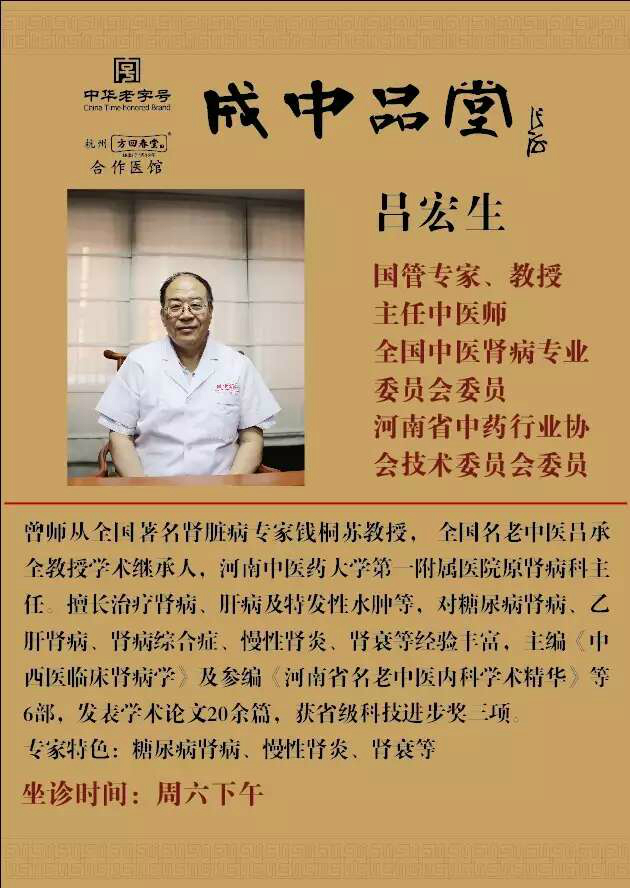 中华老字号
China Time-honored Brand
杭州 方回春堂
合作医馆
成中品堂
吕宏生
国管专家、教授
主任中医师
全国中医肾病专业
委员会委员
河南省中药行业协
会技术委员会委员
曾师从全国著名肾脏病专家钱桐苏教授，全国名老中医吕承
全教授学术继承人，河南中医药大学第一附属医院原肾病科主
任。擅长治疗肾病、肝病及特发性水肿等，对糖尿病肾病、乙
肝肾病、肾病综合症、慢性肾炎、肾衰等经验丰富，主编《中
西医临床肾病学》及参编《河南省名老中医内科学术精华》等
6部，发表学术论文20余篇，获省级科技进步奖三项。
专家特色：糖尿病肾病、慢性肾炎、肾衰等
坐诊时间：周六下午